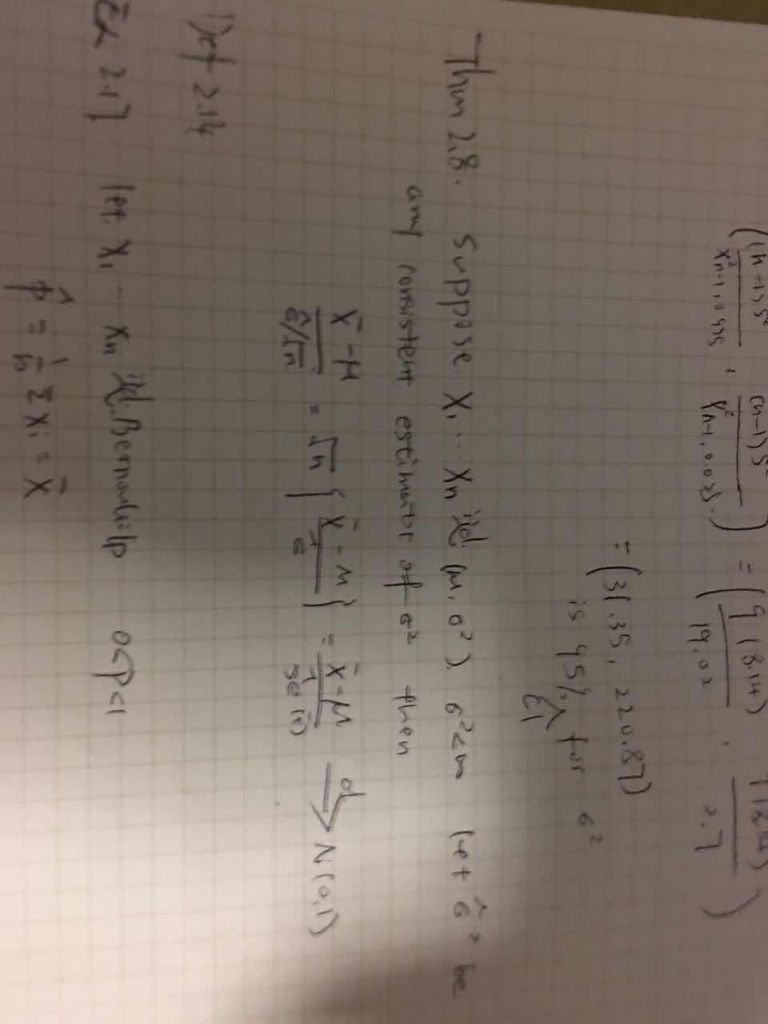 ( (n-1)S² / χ²n-1,0.975 , (n-1)S² / χ²n-1,0.025 ) = ( 9 (8.14)² / 19.02 , 9 (8.14)² / 2.7 )
= (31.35, 220.87)
is 95% CI for σ²
Thm 2.8. Suppose X₁ ... Xn iid (μ, σ²). σ²<∞ let σ̂² be
any consistent estimator of σ² then
X̄-μ / σ̂/√n = √n { X̄-μ / σ̂ } = X̄-μ / se(x̄) →d N(0,1)
Def 2.14
Ex 2.17 let X₁ ... Xn iid. Bernoulli p 0<p<1
p̂ = 1/n Σ Xi = X̄